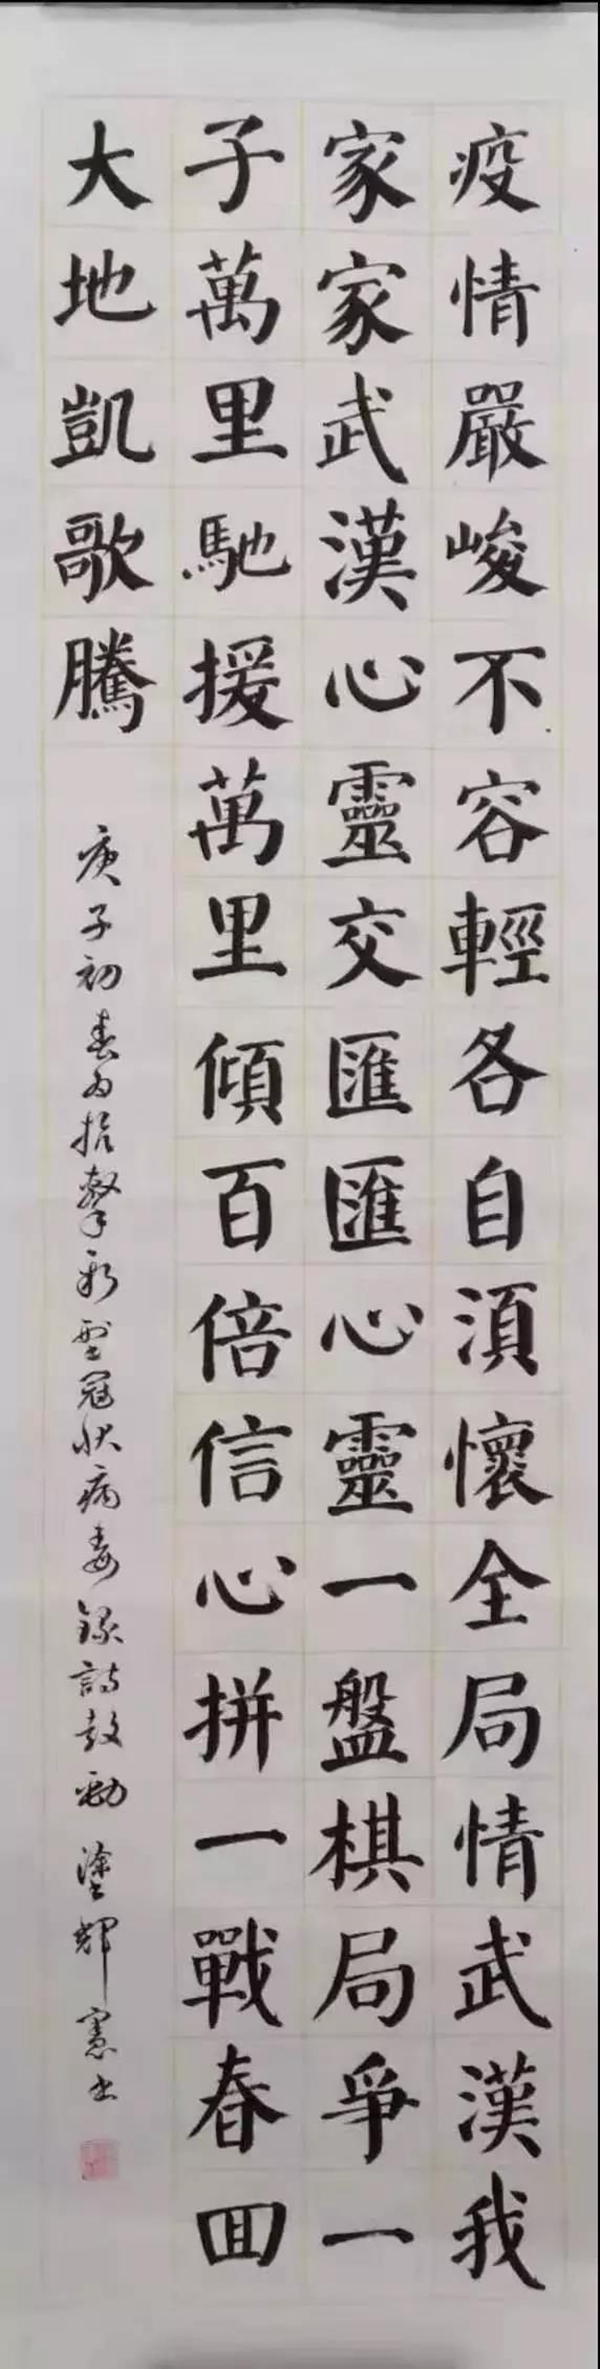 疫情嚴峻不容輕各自須懷全局情武漢我
家家武漢心靈交匯匯心靈一盤棋局爭一
子萬里馳援萬里傾百倍信心拼一戰春回
大地凱歌騰
庚子初春为抗擊新型冠狀病毒錄詩鼓勁 塗輝憲书